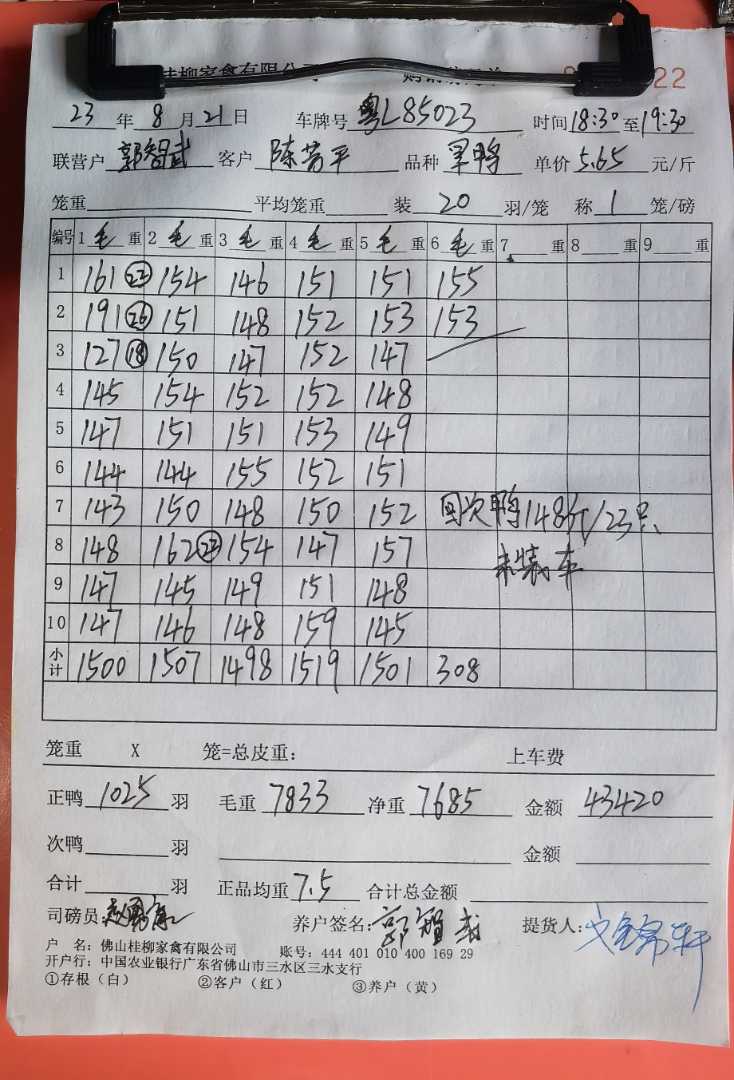 桂柳家禽有限公司 22
23 年 8 月 21 日 车牌号 粤L85023 时间 18:30 至 19:30
联营户 郭智武 客户 陈芳平 品种 单价 5.65 元/斤
笼重 平均笼重 装 20 羽/笼 称 1 笼/磅
编号 1 毛 重 2 毛 重 3 毛 重 4 毛 重 5 毛 重 6 毛 重 7 重 8 重 9 重
1 161 (22) 154 146 151 151 155
2 191 (26) 151 148 152 153 153
3 127 (18) 150 147 152 147
4 145 154 152 152 148
5 147 151 151 153 149
6 144 144 155 152 151
7 143 150 148 150 152 回次鸭148斤/23只、
8 148 162 (22) 154 147 157 未装车
9 147 145 149 151 148
10 147 146 148 159 145
小计 1500 1507 1498 1519 1501 308
笼重 X 笼=总皮重: 上车费
正鸭 1025 羽 毛重 7833 净重 7685 金额 43420
次鸭 羽 金额
合计 羽 正品均重 7.5 合计总金额
司磅员: 养户签名: 郭智武 提货人:
户 名: 佛山桂柳家禽有限公司 账号: 444 401 010 400 169 29
开户行: 中国农业银行广东省佛山市三水区三水支行
①存根（白） ②客户（红） ③养户（黄）